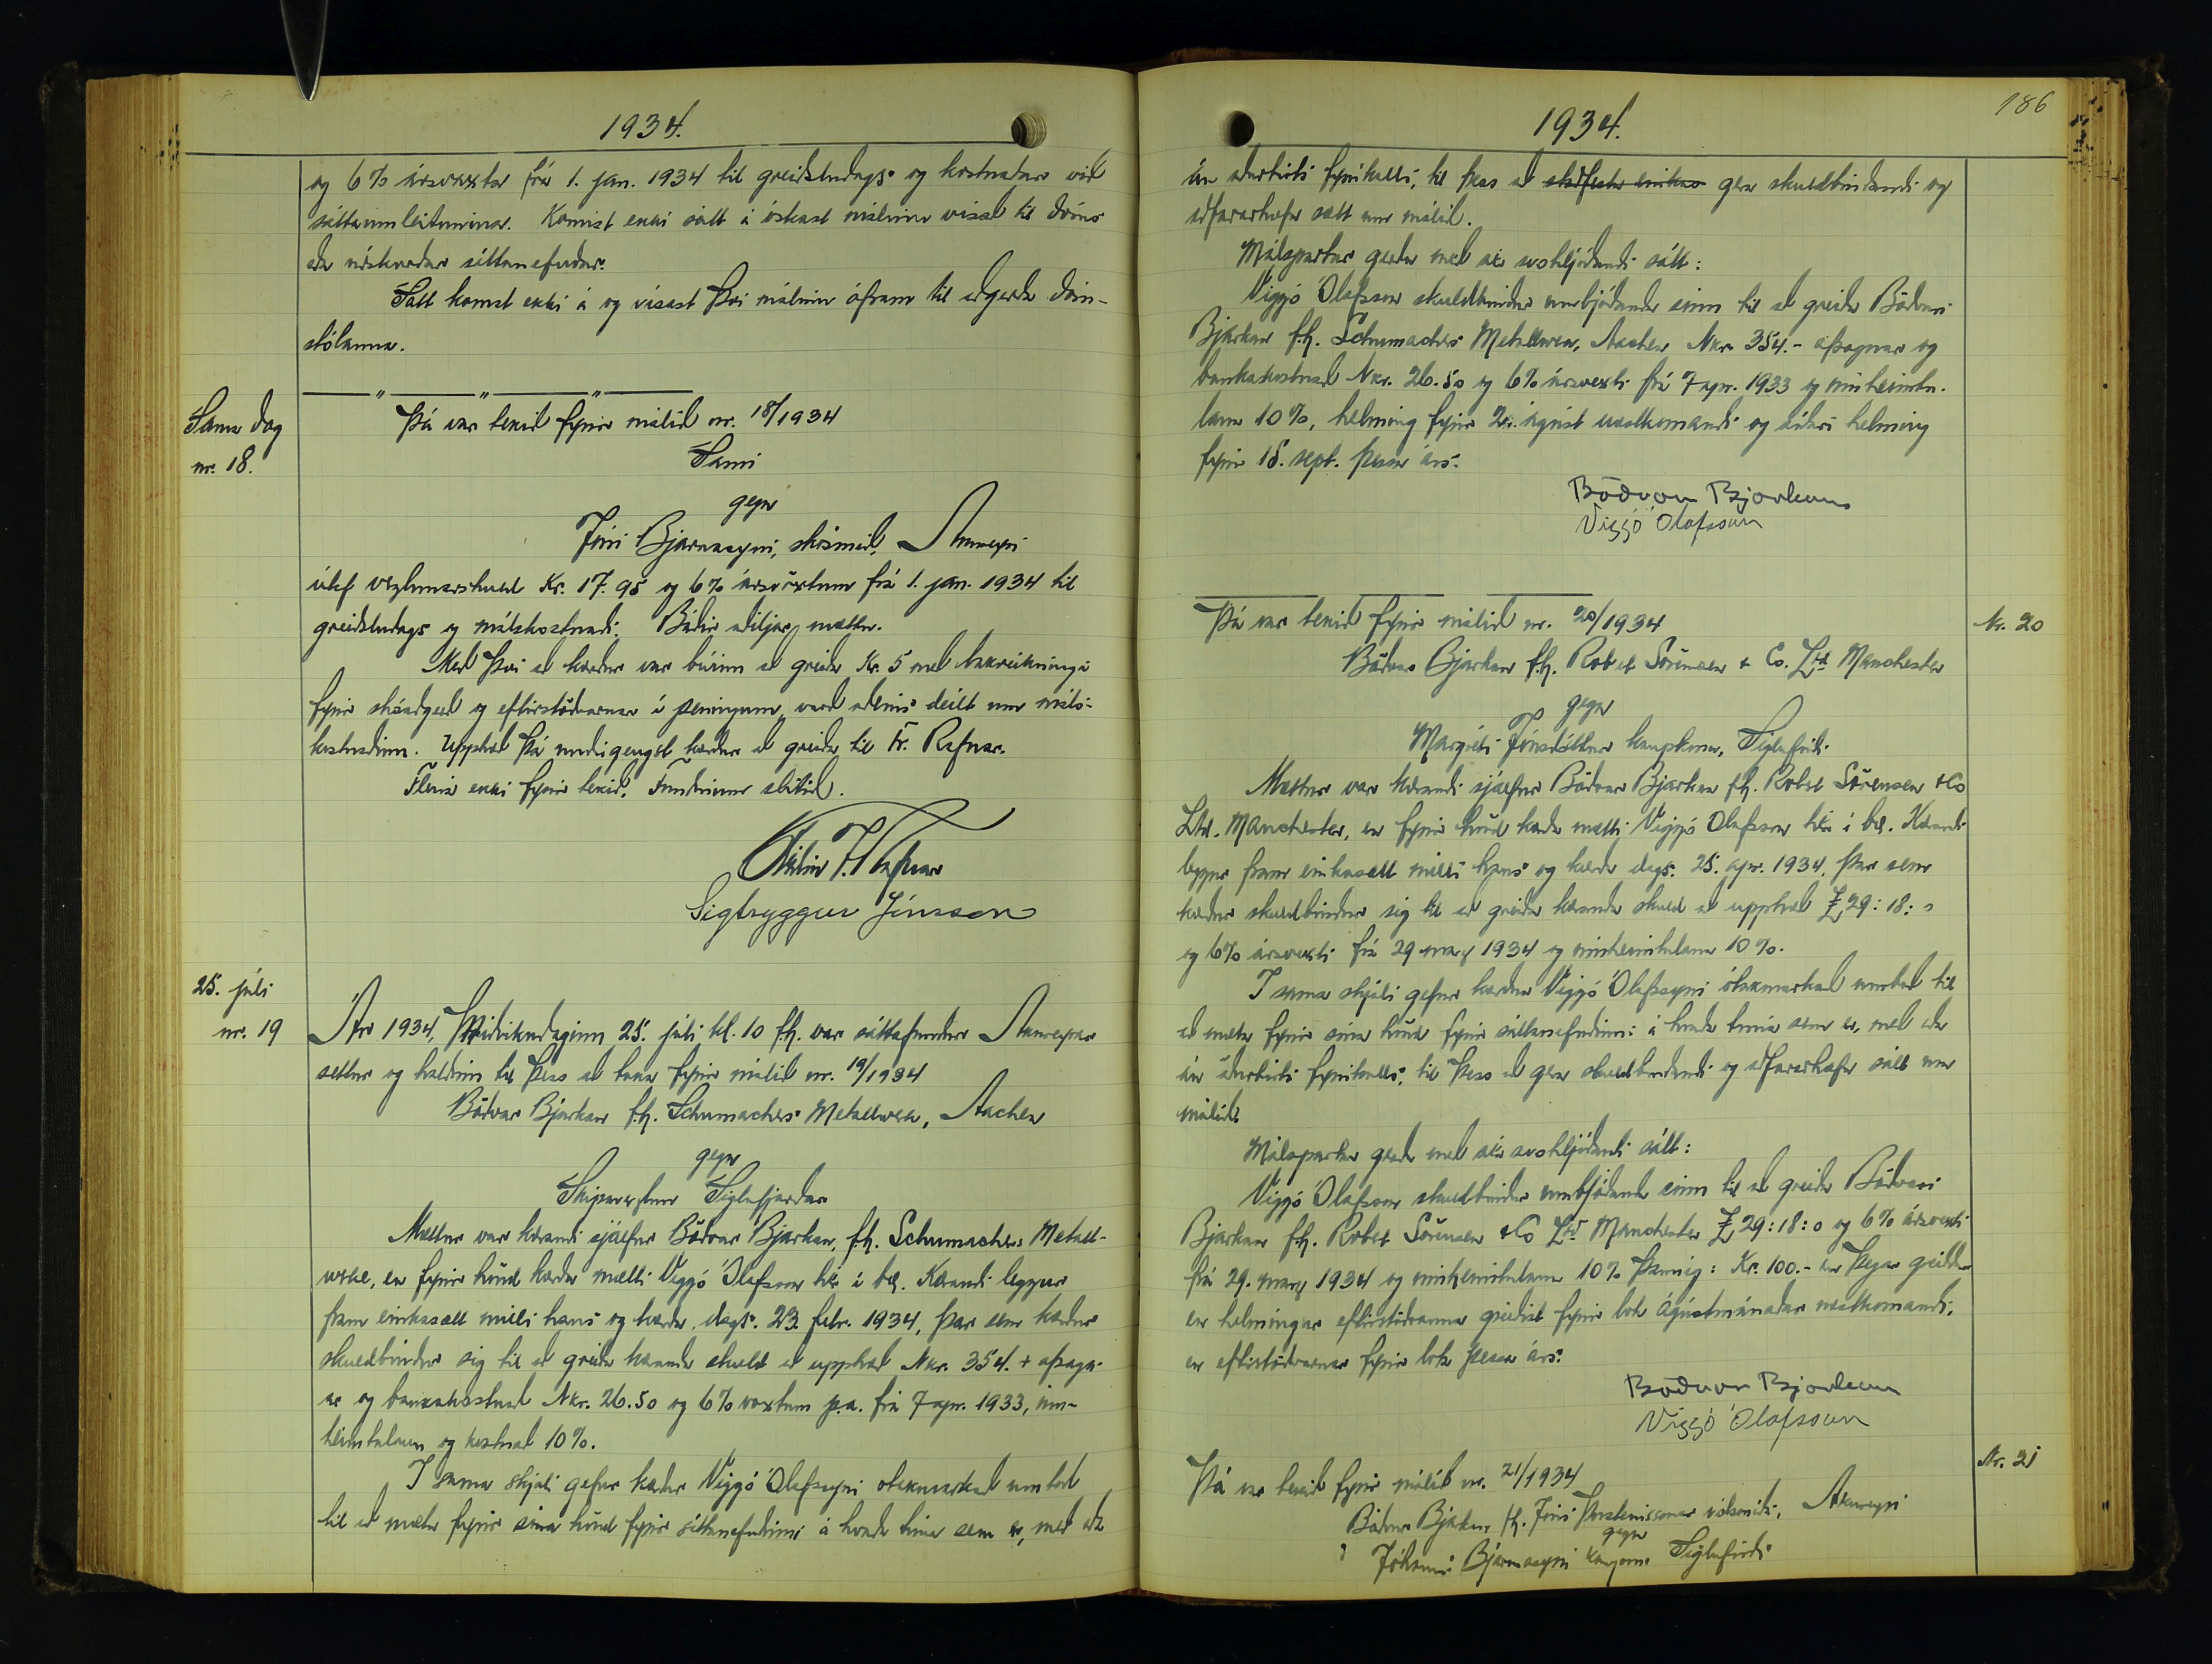 1934.
og 6% ársvexta frá 1. jan. 1934 til greiðsludags og kostnaðar við
sáttaumleitunina. Komist ekki sátt á óskast málinu vísað til dóms
eða úrskurðar sáttanefndar.
Sátt komst ekki á og vísast því málinu áfram til aðgerða dóm-
stólanna.
Sama dag
nr. 18.
Þá var tekið fyrir málið nr. 18/1934
Sami
gegn
Jóni Bjarnasyni, skósmið, Akureyri
útaf verzlunarskuld Kr. 17.95 og 6% ársvöxtum frá 1. jan. 1934 til
greiðsludags og málskostnaði. Báðir aðiljar mættu.
Með því að kærður var búinn að greiða Kr. 5 með
fyrir skóaðgerð og eftirstöðvarnar í peningum, varð aðeins deilt um máls-
kostnaðinn. Upphæð þá undigengst kærður að greiða til Fr. Rafnar.
Fleira ekki fyrir tekið. Fundinum slitið.
Friðrik J. Rafnar
Sigtryggur Jónsson
25. júlí
nr. 19
Ár 1934, Miðvikudaginn 25. júlí kl. 10 f.h. var sáttafundur Akureyrar
settur og haldinn til þess að taka fyrir málið nr. 19/1934
Böðvar Bjarkan f.h. Schumachers Metallwerk, Aachen
gegn
Skipaverslun Siglufjarðar
Mættur var kærandi sjálfur Böðvar Bjarkan, f.h. Schumachers Metall-
werke, en fyrir hönd kærða mætti Viggó Ólafsson hér í bæ. Kærandi leggur
fram einkasátt milli hans og kærða, dags. 23. febr. 1934, þar sem kærður
skuldbindur sig til að greiða kæranda skuld að upphæð Nkr. 354. + afsagn-
ar og bankakostnað Nkr. 26.50 og 6% vöxtum p.a. frá 7 apr. 1933, inn-
heimtulaun og kostnað 10%.
Í sama skjali gefur kærður Viggó Ólafssyni ótakmarkað umboð
til að mæta fyrir sína hönd fyrir sáttanefndinni á hvaða tíma sem er, með eða
1934.
186
án sérstaks fyrirkalls, til þess að staðfesta einka gera skuldbindandi og
aðfararhæfa sátt um málið.
Málspartar gerðu með sér svohljóðandi sátt:
Viggó Ólafsson skuldbindur umbjóðanda sinn til að greiða Böðvari
Bjarkan f.h. Schumachers Metallwerk, Aachen Nkr. 354.- afsagnar og
bankakostnað Nkr. 26.50 og 6% ársvexti frá 7 apr. 1933 og innheimtu-
laun 10%, helming fyrir 2. ágúst næstkomandi og síðari helming
fyrir 15. sept. þessa árs.
Böðvar Bjarkan
Viggó Ólafsson
Nr. 20
Þá var tekið fyrir málið nr. 20/1934
Böðvar Bjarkan f.h. Robert Sörensen & Co. Ltd Manchester
gegn
Margréti Jónsdóttur kaupkonu, Siglufirði.
Mættur var kærandi sjálfur Böðvar Bjarkan f.h. Robert Sörensen & Co
Ltd. Manchester, en fyrir hönd kærða mætti Viggó Ólafsson hér í bæ. Kærandi
leggur fram einkasátt milli hans og kærða dags. 25. apr. 1934, þar sem
kærður skuldbindur sig til að greiða kæranda skuld að upphæð £ 29:18:0
og 6% ársvexti frá 29 marz 1934 og innheimtulaun 10%.
Í sama skjali gefur kærður Viggó Ólafssyni ótakmarkað umboð til
að mæta fyrir sína hönd fyrir sáttanefndinni á hvaða tíma sem er, með eða
án sérstaks fyrirkalls, til þess að gera skuldbindandi og aðfararhæfa sátt um
málið.
Málspartar gerðu með sér svohljóðandi sátt:
Viggó Ólafsson skuldbindur umbjóðanda sinn til að greiða Böðvari
Bjarkan f.h. Robert Sörensen & Co Ltd Manchester £ 29:18:0 og 6% ársvexti
frá 29. marz 1934 og innheimtulaun 10% þannig: Kr. 100.- er þegar greiddar
en helmingur eftirstöðvanna greiðist fyrir lok ágústmánaðar næstkomandi,
en eftirstöðvarnar fyrir lok þessa árs.
Böðvar Bjarkan
Viggó Ólafsson
Nr. 21
Þá var tekið fyrir málið nr. 21/1934
Böðvar Bjarkan f.h. Jóns Þorsteinssonar Akureyri
gegn
Jóhanni Bjarnasyni Siglufirði